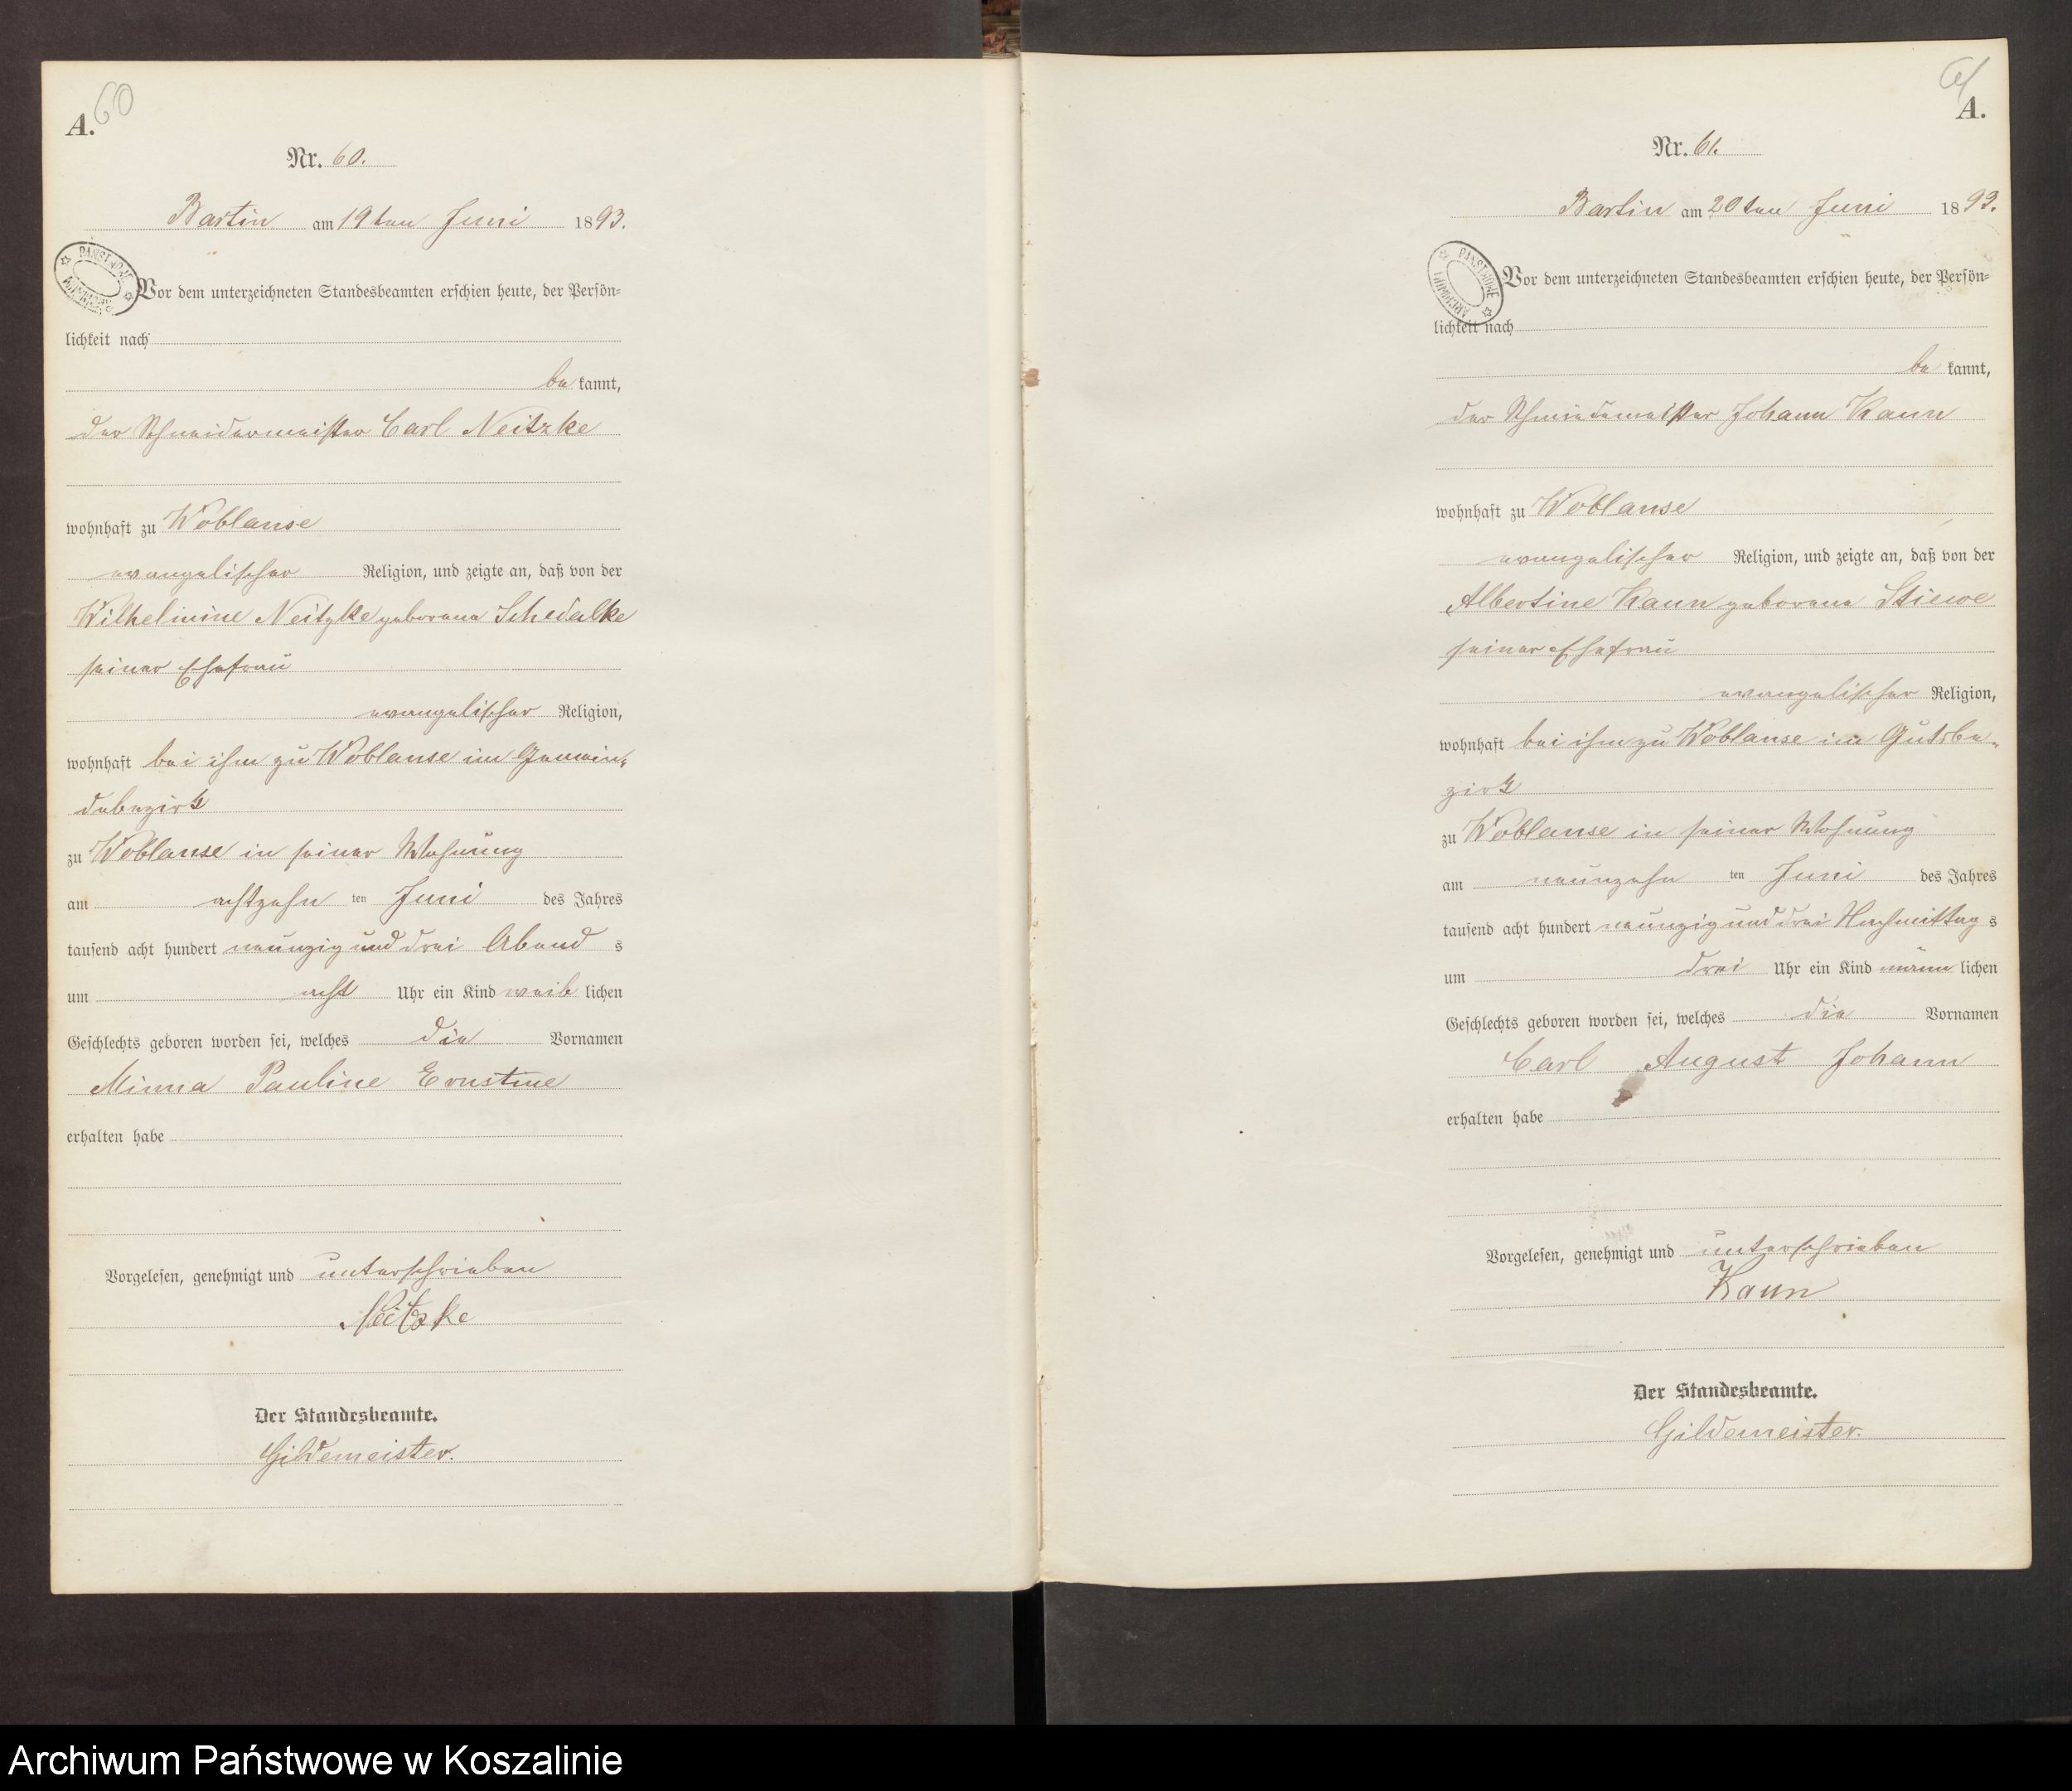 60
A.
Nr. 60.
Bartin am 19ten Juni 1893.
PAŃSTWOWE ARCHIWUM
Vor dem unterzeichneten Standesbeamten erschien heute, der Persön=
lichkeit nach
be kannt,
der Schneidermeister Carl Neitzke
wohnhaft zu Woblanse
evangelischer Religion, und zeigte an, daß von der
Wilhelmine Neitzke geborene Schedalke
seiner Ehefrau
evangelischer Religion,
wohnhaft bei ihm zu Woblanse im Gemein„
debezirk
zu Woblanse in seiner Wohnung
am achtzehn ten Juni des Jahres
tausend acht hundert neunzig und drei Abend s
um acht Uhr ein Kind weib lichen
Geschlechts geboren worden sei, welches die Vornamen
Minna Pauline Ernstine
erhalten habe
Vorgelesen, genehmigt und unterschrieben
Neitzke
Der Standesbeamte.
Gildemeister.
61
A.
Nr. 61.
Bartin am 20ten Juni 1893.
PAŃSTWOWE ARCHIWUM
Vor dem unterzeichneten Standesbeamten erschien heute, der Persön=
lichkeit nach
be kannt,
der Schmiedemeister Johann Kaun
wohnhaft zu Woblanse
evangelischer Religion, und zeigte an, daß von der
Albertine Kaun geborene Stiewe
seiner Ehefrau
evangelischer Religion,
wohnhaft bei ihm zu Woblanse im Gutsbe„
zirk
zu Woblanse in seiner Wohnung
am neunzehn ten Juni des Jahres
tausend acht hundert neunzig und drei Nachmittag s
um drei Uhr ein Kind männ lichen
Geschlechts geboren worden sei, welches die Vornamen
Carl August Johann
erhalten habe
Vorgelesen, genehmigt und unterschrieben
Kaun
Der Standesbeamte.
Gildemeister.
Archiwum Państwowe w Koszalinie